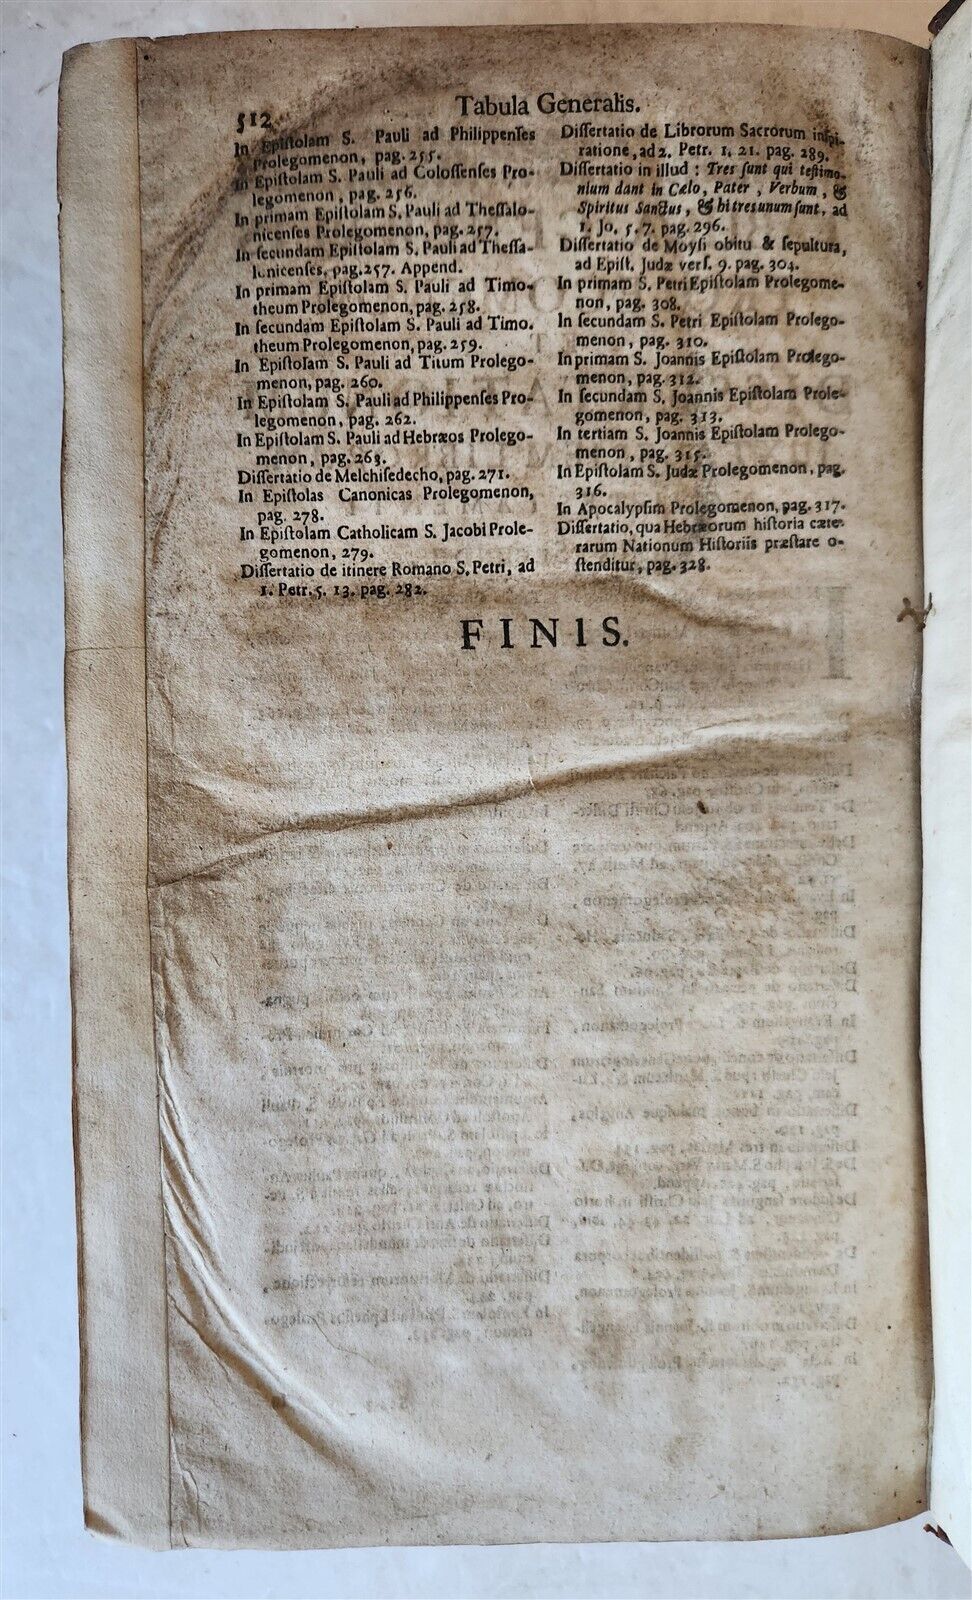 512
Tabula Generalis.
In Epiſtolam S. Pauli ad Philippenſes
Prolegomenon, pag. 255.
In Epiſtolam S. Pauli ad Coloſſenſes Pro-
legomenon, pag. 256.
In primam Epiſtolam S. Pauli ad Theſſalo-
nicenſes Prolegomenon, pag. 257.
In ſecundam Epiſtolam S. Pauli ad Theſſa-
lonicenſes, pag. 257. Append.
In primam Epiſtolam S. Pauli ad Timo-
theum Prolegomenon, pag. 258.
In ſecundam Epiſtolam S. Pauli ad Timo.
theum Prolegomenon, pag. 259.
In Epiſtolam S. Pauli ad Titum Prolego-
menon, pag. 260.
In Epiſtolam S. Pauli ad Philippenſes Pro-
legomenon, pag. 262.
In Epiſtolam S. Pauli ad Hebræos Prolego-
menon, pag. 263.
Diſſertatio de Melchiſedecho, pag. 271.
In Epiſtolas Canonicas Prolegomenon,
pag. 278.
In Epiſtolam Catholicam S. Jacobi Prole-
gomenon, 279.
Diſſertatio de itinere Romano S. Petri, ad
1. Petr. 5. 13. pag. 282.
Diſſertatio de Librorum Sacrorum inſpi-
ratione, ad 2. Petr. 1. 21. pag. 289.
Diſſertatio in illud : Tres ſunt qui teſtimo-
nium dant in Cælo, Pater, Verbum, &
Spiritus Sanctus, & hi tres unum ſunt, ad
1. Jo. 5. 7. pag. 296.
Diſſertatio de Moyſi obitu & ſepultura,
ad Epiſt. Judæ verſ. 9. pag. 304.
In primam S. Petri Epiſtolam Prolegome-
non, pag. 308.
In ſecundam S. Petri Epiſtolam Prolego-
menon, pag. 310.
In primam S. Joannis Epiſtolam Prolego-
menon, pag. 312.
In ſecundam S. Joannis Epiſtolam Prole-
gomenon, pag. 313.
In tertiam S. Joannis Epiſtolam Prolego-
menon, pag. 315.
In Epiſtolam S. Judæ Prolegomenon, pag.
316.
In Apocalypſim Prolegomenon, pag. 317.
Diſſertatio, qua Hebræorum hiſtoria cæte-
rarum Nationum Hiſtoriis præſtare o-
ſtenditur, pag. 328.
FINIS.